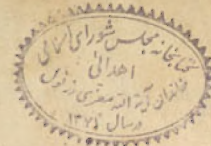 کتابخانه مجلس شورای اسلامی
اهدائی
خاندان آیة الله
در سال ۱۳۷۴